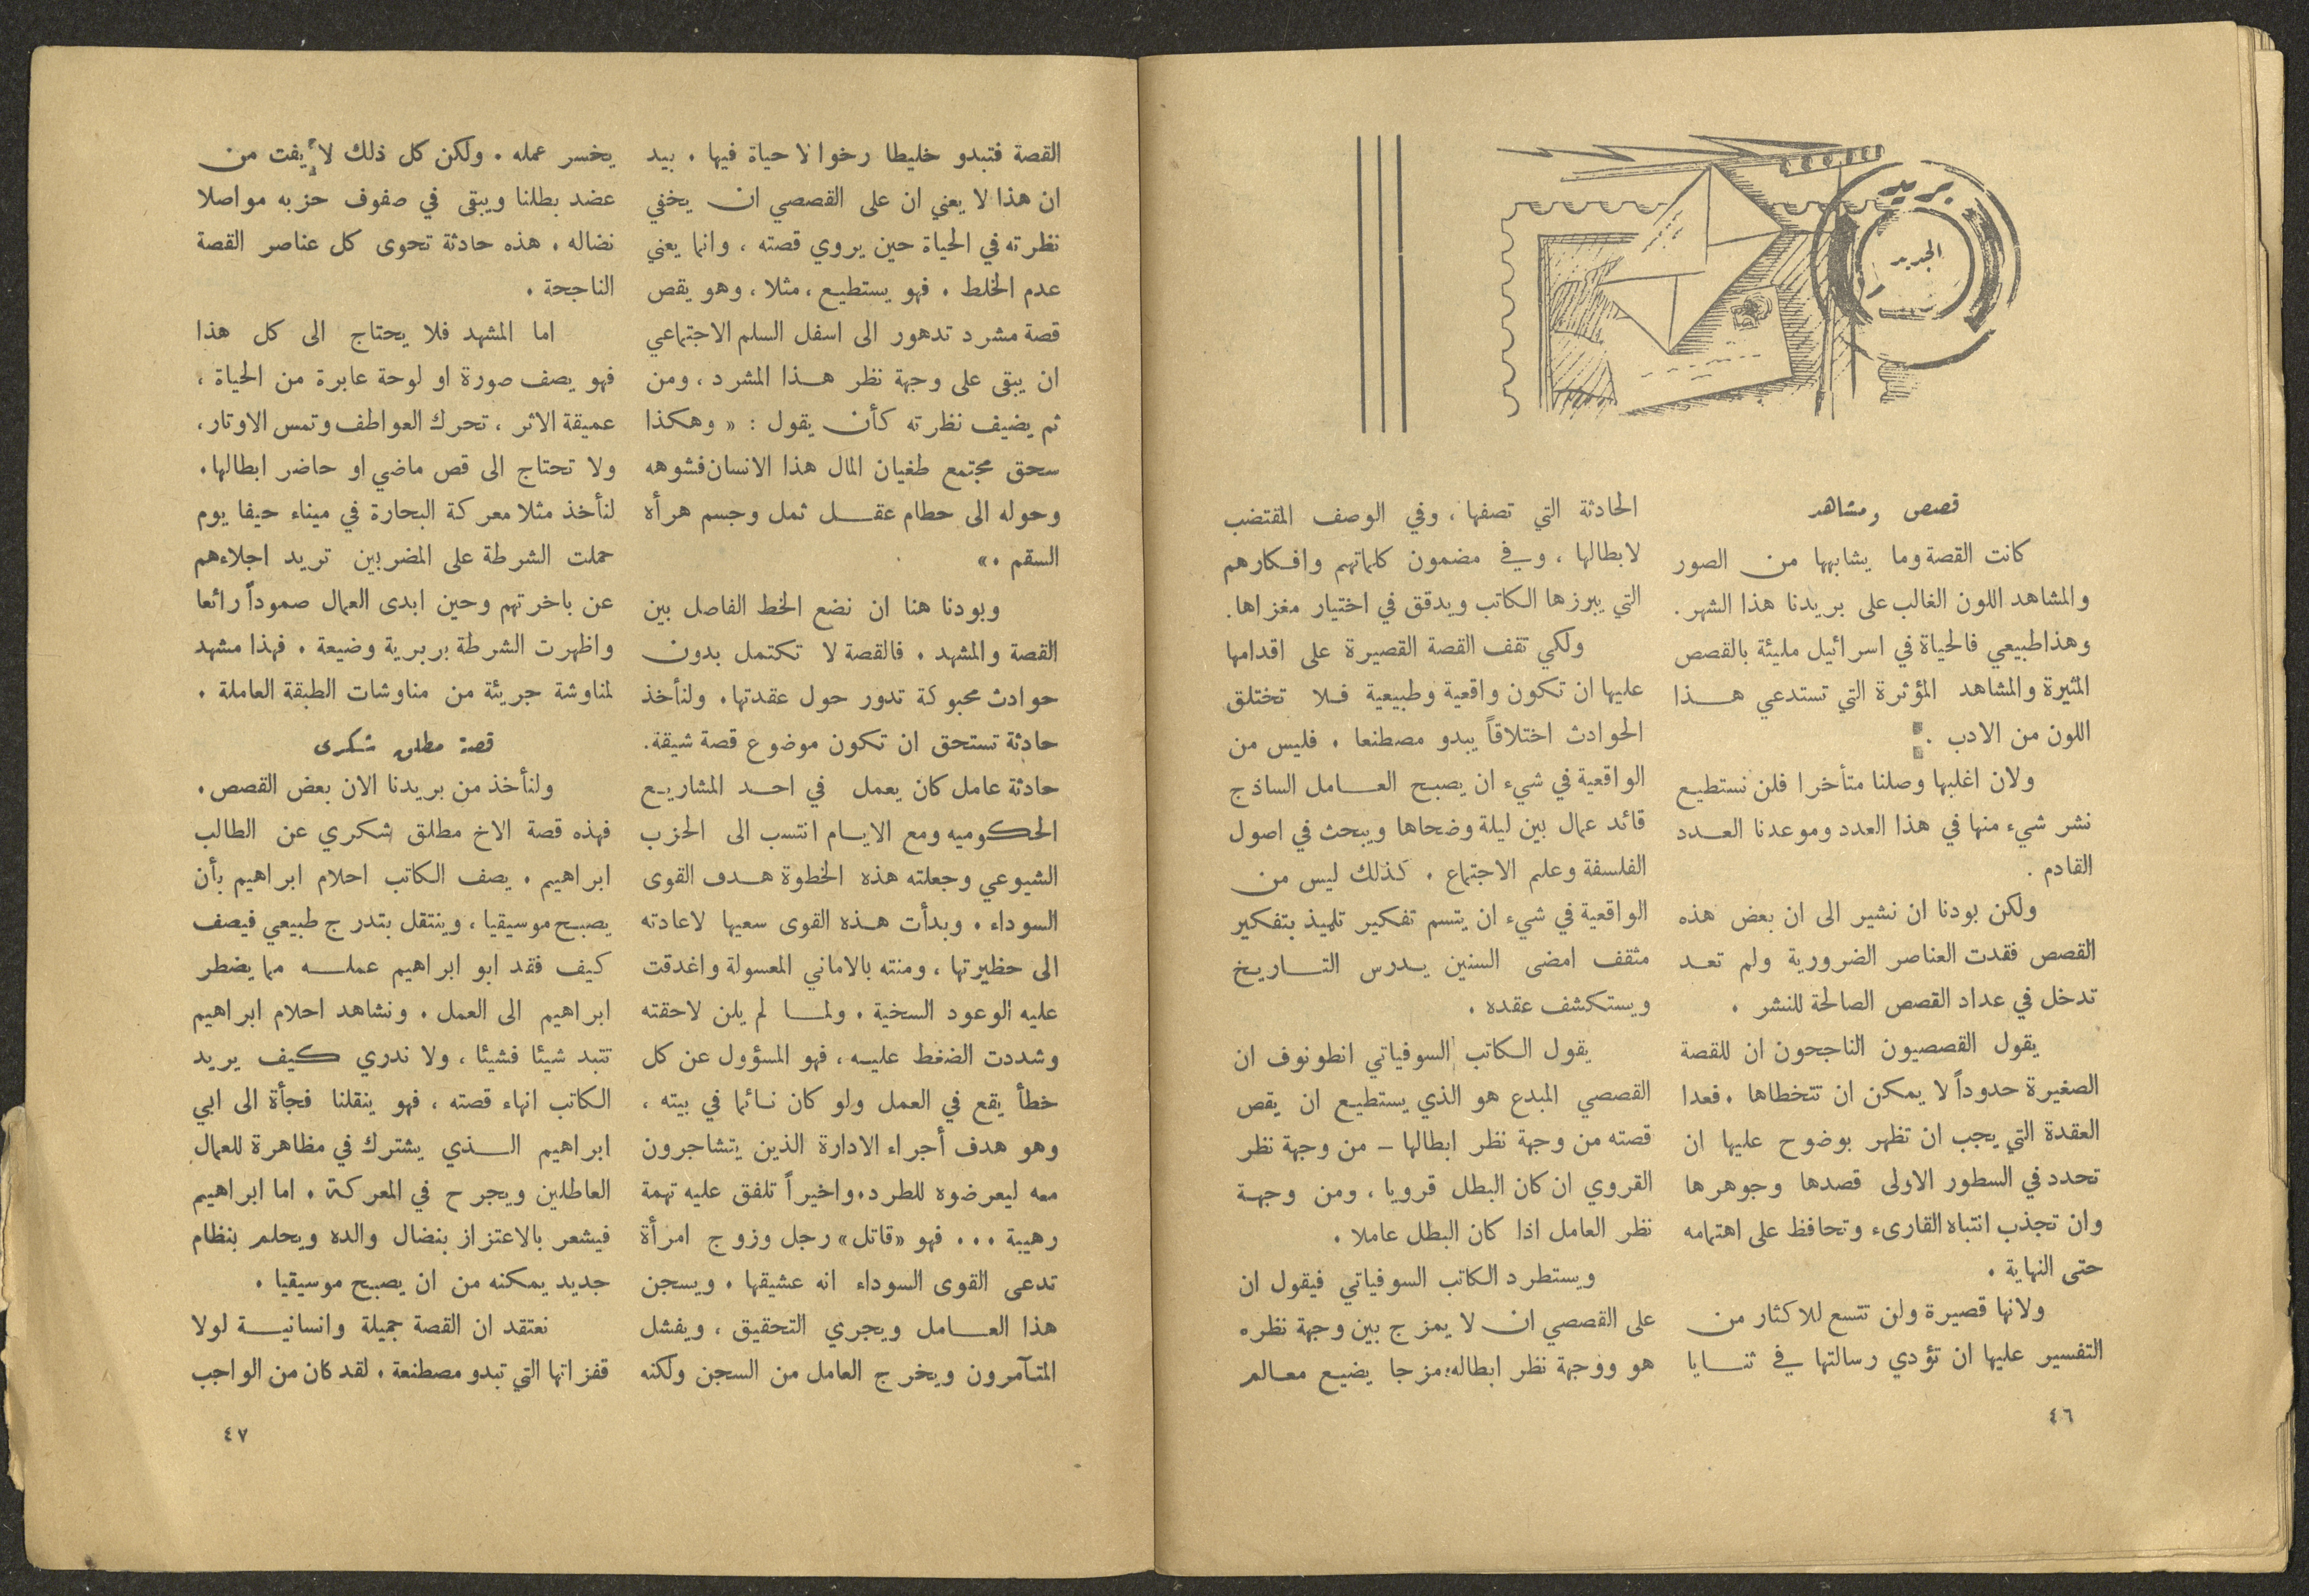 بريد
الجديد
قصص ومشاهد
كانت القصة وما يشابهها من الصور
والمشاهد اللون الغالب على بريدنا هذا الشهر.
وهذا طبيعي فالحياة في اسرائيل مليئة بالقصص
المثيرة والمشاهد المؤثرة التي تستدعي هذا
اللون من الادب .
ولان اغلبها وصلنا متأخرا فلن نستطيع
نشر شيء منها في هذا العدد وموعدنا العدد
القادم .
ولكن بودنا ان نشير الى ان بعض هذه
القصص فقدت العناصر الضرورية ولم تعد
تدخل في عداد القصص الصالحة للنشر .
يقول القصصيون الناجحون ان للقصة
الصغيرة حدوداً لا يمكن ان تتخطاها . فعدا
العقدة التي يجب ان تظهر بوضوح عليها ان
تحدد في السطور الاولى قصدها وجوهرها
وان تجذب انتباه القارىء وتحافظ على اهتمامه
حتى النهاية .
ولانها قصيرة ولن تتسع للاكثار من
التفسير عليها ان تؤدي رسالتها في ثنايا
الحادثة التي تصفها ، وفي الوصف المقتضب
لابطالها ، وفي مضمون كلماتهم وافكارهم
التي يبرزها الكاتب ويدقق في اختيار مغزاها.
ولكي تقف القصة القصيرة على اقدامها
عليها ان تكون واقعية وطبيعية فلا تختلق
الحوادث اختلاقاً يبدو مصطنعا . فليس من
الواقعية في شيء ان يصبح العامل الساذج
قائد عمال بين ليلة وضحاها ويبحث في اصول
الفلسفة وعلم الاجتماع . كذلك ليس من
الواقعية في شيء ان يتسم تفكير تلميذ بتفكير
مثقف امضى السنين يدرس التاريخ
ويستكشف عقده .
يقول الكاتب السوفياتي انطونوف ان
القصصي المبدع هو الذي يستطيع ان يقص
قصته من وجهة نظر ابطالها – من وجهة نظر
القروي ان كان البطل قرويا ، ومن وجهة
نظر العامل اذا كان البطل عاملا .
ويستطرد الكاتب السوفياتي فيقول ان
على القصصي ان لا يمزج بين وجهة نظره
هو ووجهة نظر ابطاله مزجا يضيع معالم
٤٦
القصة فتبدو خليطا رخوا لا حياة فيها . بيد
ان هذا لا يعني ان على القصصي ان يخفي
نظرته في الحياة حين يروي قصته ، وانما يعني
عدم الخلط . فهو يستطيع ، مثلا ، وهو يقص
قصة مشرد تدهور الى اسفل السلم الاجتماعي
ان يبقى على وجهة نظر هذا المشرد ، ومن
ثم يضيف نظرته كأن يقول : « وهكذا
سحق مجتمع طغيان المال هذا الانسان فشوهه
وحوله الى حطام عقل ثمل وجسم هرأه
السقم .»
وبودنا هنا ان نضع الخط الفاصل بين
القصة والمشهد . فالقصة لا تكتمل بدون
حوادث محبوكة تدور حول عقدتها. ولنأخذ
حادثة تستحق ان تكون موضوع قصة شيقة.
حادثة عامل كان يعمل في احد المشاريع
الحكوميه ومع الايام انتسب الى الحزب
الشيوعي وجعلته هذه الخطوة هدف القوى
السوداء . وبدأت هذه القوى سعيها لاعادته
الى حظيرتها ، ومنته بالاماني المعسولة واغدقت
عليه الوعود السخية . ولما لم يلن لاحقته
وشددت الضغط عليه ، فهو المسؤول عن كل
خطأ يقع في العمل ولو كان نائما في بيته ،
وهو هدف أجراء الادارة الذين يتشاجرون
معه ليعرضوه للطرد. واخيراً تلفق عليه تهمة
رهيبة ... فهو «قاتل» رجل وزوج امرأة
تدعى القوى السوداء انه عشيقها . ويسجن
هذا العامل ويجري التحقيق ، ويفشل
المتآمرون ويخرج العامل من السجن ولكنه
يخسر عمله . ولكن كل ذلك لا يفت من
عضد بطلنا ويبقى في صفوف حزبه مواصلا
نضاله . هذه حادثة تحوى كل عناصر القصة
الناجحة .
اما المشهد فلا يحتاج الى كل هذا
فهو يصف صورة او لوحة عابرة من الحياة ،
عميقة الاثر ، تحرك العواطف وتمس الاوتار،
ولا تحتاج الى قص ماضي او حاضر ابطالها.
لنأخذ مثلا معركة البحارة في ميناء حيفا يوم
حملت الشرطة على المضربين تريد اجلاءهم
عن باخرتهم وحين ابدى العمال صموداً رائعا
واظهرت الشرطة بربرية وضيعة . فهذا مشهد
لمناوشة جريئة من مناوشات الطبقة العاملة .
قصة مطلق شكرى
ولنأخذ من بريدنا الان بعض القصص.
فهذه قصة الاخ مطلق شكري عن الطالب
ابراهيم . يصف الكاتب احلام ابراهيم بأن
يصبح موسيقيا ، وينتقل بتدرج طبيعي فيصف
كيف فقد ابو ابراهيم عمله مما يضطر
ابراهيم الى العمل . ونشاهد احلام ابراهيم
تتبد شيئا فشيئا ، ولا ندري كيف يريد
الكاتب انهاء قصته ، فهو ينقلنا فجأة الى ابي
ابراهيم الذي يشترك في مظاهرة للعمال
العاطلين ويجرح في المعركة . اما ابراهيم
فيشعر بالاعتزاز بنضال والده ويحلم بنظام
جديد يمكنه من ان يصبح موسيقيا .
نعتقد ان القصة جميلة وانسانية لولا
قفزاتها التي تبدو مصطنعة . لقد كان من الواجب
٤٧